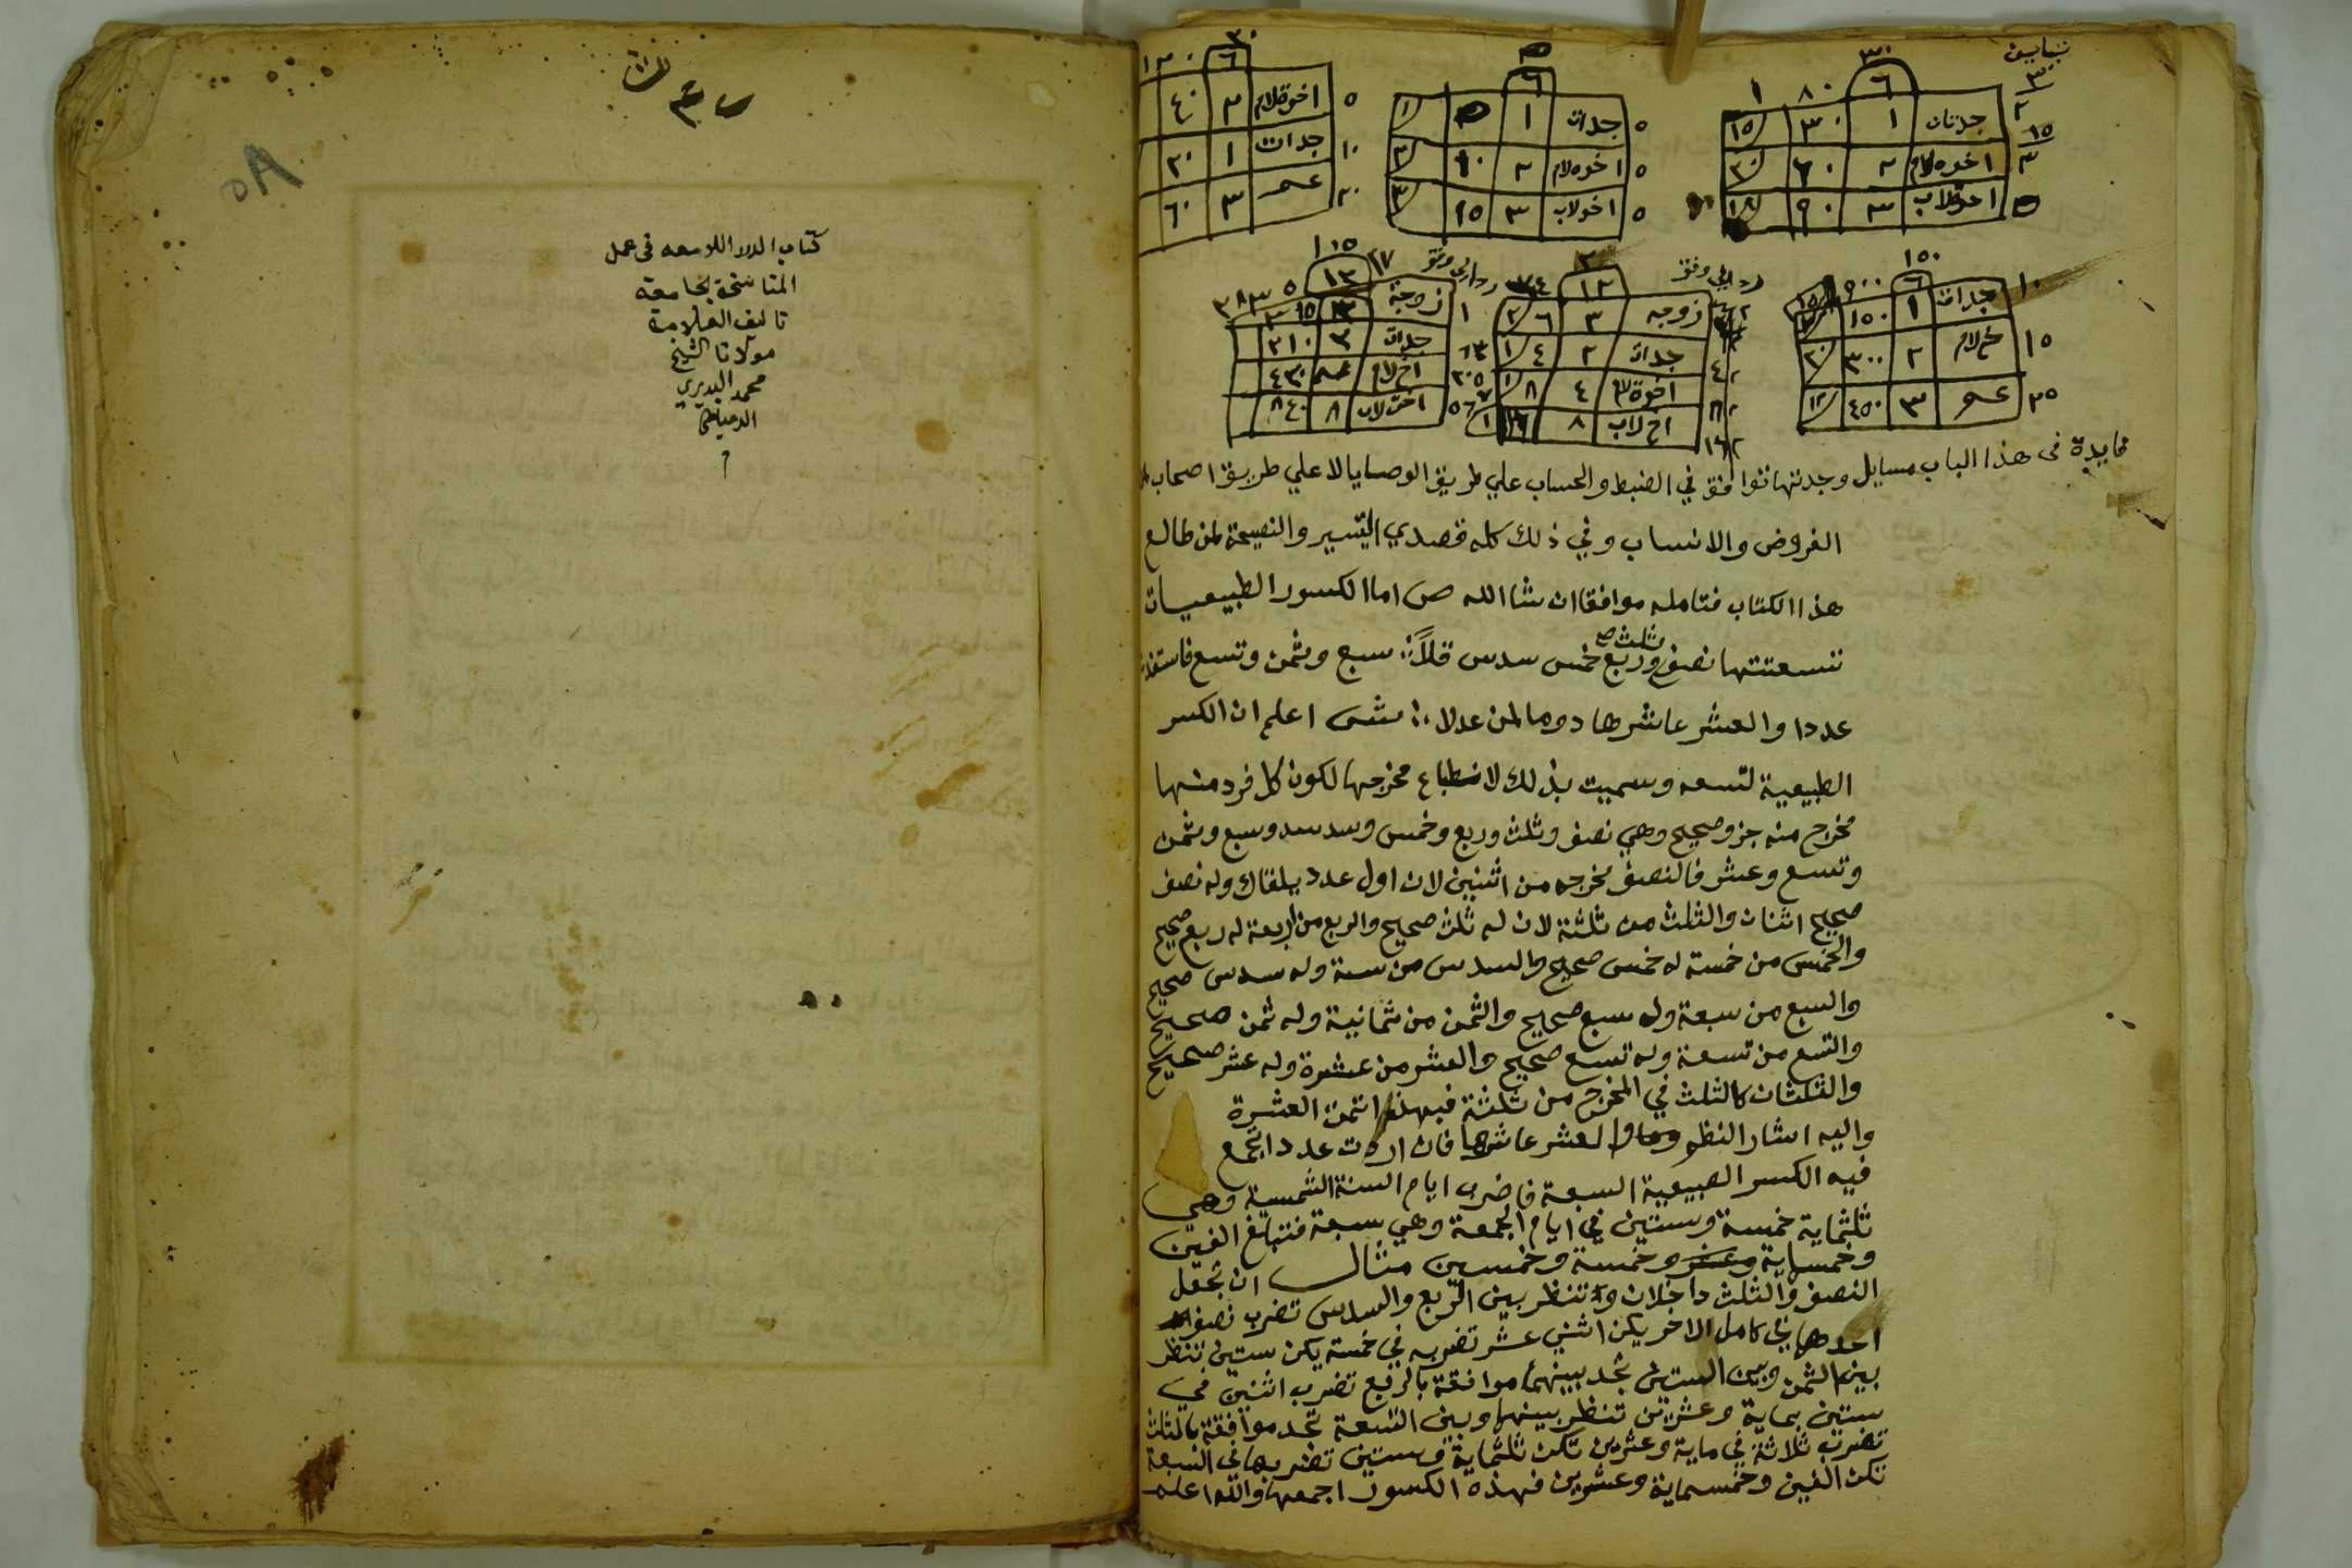 تباين
جدتان ١ ٣٠ ١٥
اخوه لام ٢ ٦٠ ٢٠
اخوة لاب ٣ ٩٠ ١٨
جدات ١
اخوه لام ٢ ١٠
اخو لاب ٣ ١٥
اخوة لام ٢ ٤٠
جدات ١ ٢٠
عم ٣ ٦٠
جدات ١ ١٥٠
خ لام ٢ ٣٠٠ ٢٠
عم ٣ ٤٥٠ ١٢
زوجه ٣ ٦ ٢
جدات ٢ ٤ ١
اخوة لام ٤ ٨ ١
اخ لاب ٨ ١٦ ١
زوجة ٣
جدات ٢ ٢١٠
اخ لام ٤٢٠
اخت لاب ٨ ٨٤٠
فايدة في هذا الباب مسايل وجدتها توافق في الضبط والحساب علي طريق الوصايا لا علي طريق اصحاب
الفروض والانساب وفي ذلك كله قصدي التيسير والنصيحة لمن طالع
هذا الكتاب فتامله موافقا ان شا الله ص اما الكسور الطبيعيات
فتسعتها نصف وثلث وربع خمس سدس قلا سبع وثمن وتسع فاستفد
عددا والعشر عاشرها دوما لمن عدلا ش اعلم ان الكسر
الطبيعية لتسعه وسميت بذلك لانطباع مخرجها لكون كل فرد منها
مخرج منه جزو صحيح وهي نصف وثلث وربع وخمس وسدسد وسبع وثمن
وتسع وعشر فالنصف مخرجه من اثنين لان اول عدد يلقاك وله نصف
صحيح اثنان والثلث من ثلثة لان له ثلث صحيح والربع من اربعة له ربع صحيح
والخمس من خمسة له خمس صحيح والسدس من ستة وله سدس صحيح
والسبع من سبعة وله سبع صحيح والثمن من ثمانية وله ثمن صحيح
والتسع من تسعة وله تسع صحيح والعشر من عشرة وله عشر صحيح
والثلثان كالثلث في المخرج من ثلثة فبهذا تمت العشرة
واليه اشار النظم والعشر عاشرها فان اردت عددا تجمع
فيه الكسر الطبيعية السبعة فاضرب ايام السنة الشمسية وهي
ثلثماية خمسة وستين في ايام الجمعة وهي سبعة فتبلغ الفين
وخمساية وخمسة وخمسين مثال ان تجعل
النصف والثلث داخلان وتنظر بين الربع والسدس تضرب نصف
احدهما في كامل الاخر يكن اثني عشر تضربه في خمسة يكن ستين تنظر
بين الثمن وبين الستين تجد بينهما موافقة بالربع تضرب اثنين في
ستين بماية وعشرين تنظر بينها وبين التسعة تجد موافقة بالثلث
تضرب ثلاثة في ماية وعشرين تكن ثلثماية وستين تضربها في السبعة
تكن الفين وخمسماية وعشرين فهذه الكسور اجمعها والله اعلم
٥٨
كتاب الدرر اللامعه في عمل
المناسخة بجامعة
تاليف العلامة
مولانا الشيخ
محمد البديري
الدمياطي
م